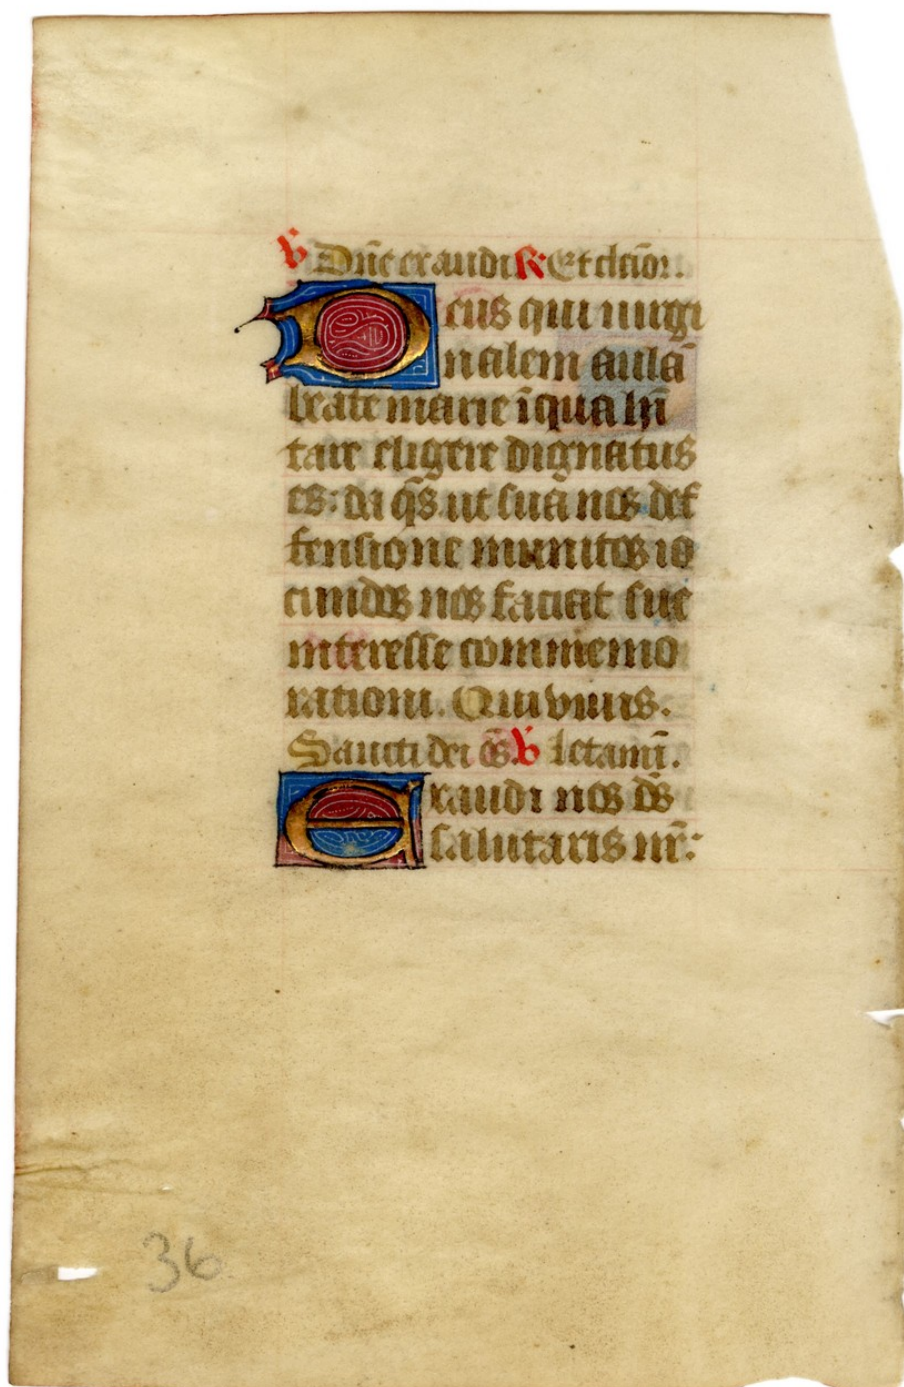 V Dñe exaudi R Et clamor.
Deus qui uirgi
nalem aulā
beate marie ī qua hĩ
tare eligere dignatus
es: da q̄s. ut sua nos def
fensione munitos io
cundos nos faciat sue
interesse commemo
rationi. Qui viuis.
Sancti dei oēs. V letamī.
Exaudi nos ds̄
salutaris nr̄:
36